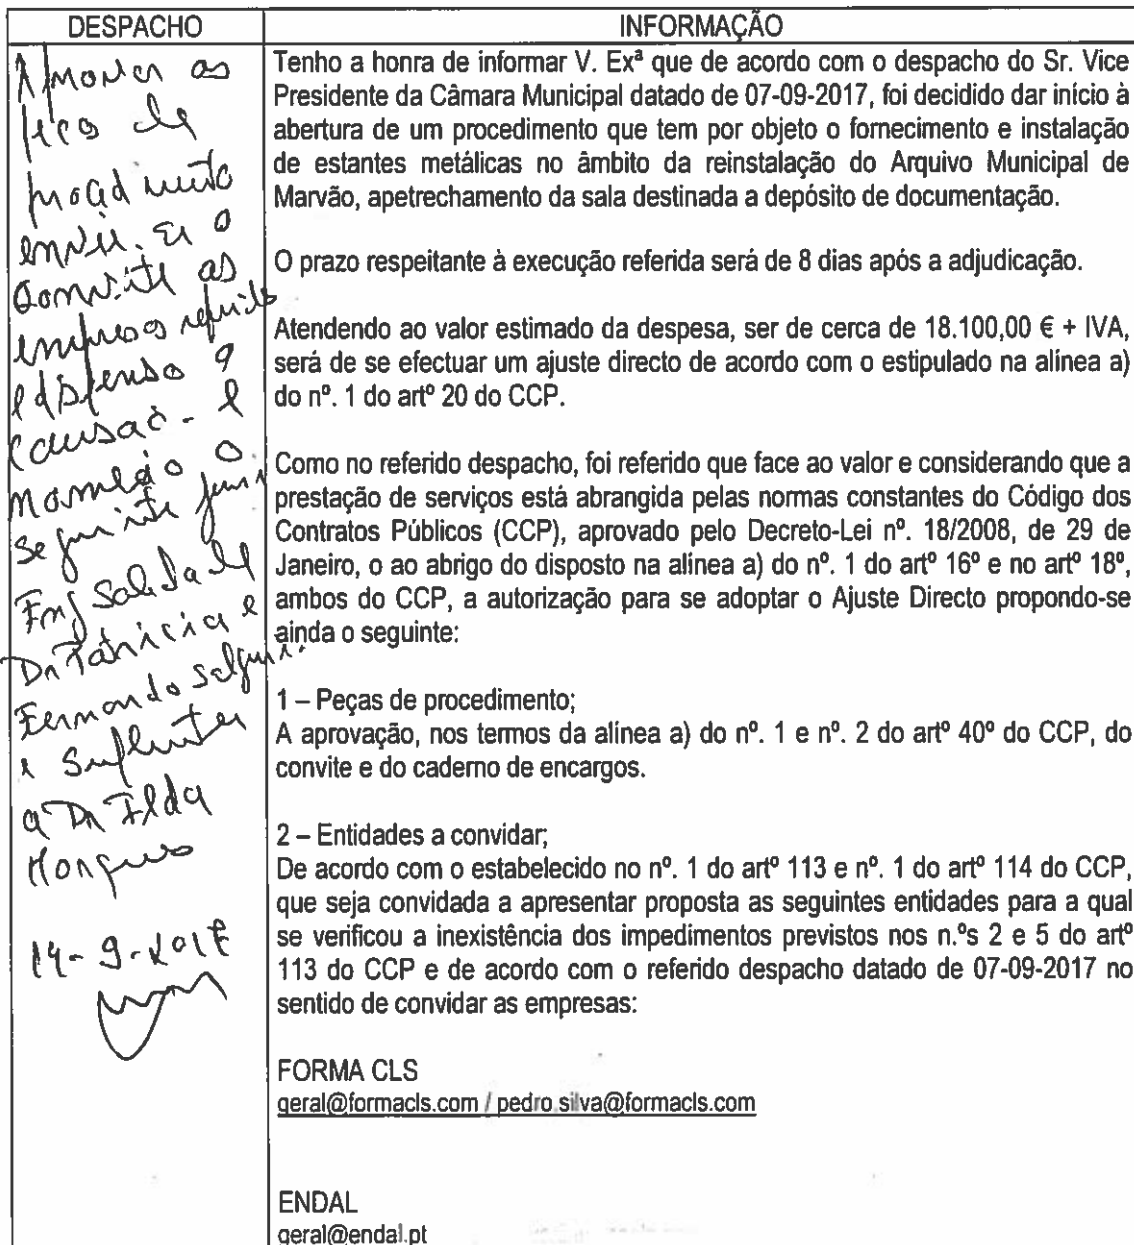 DESPACHO
as
de
procedimento
envie-se o
convite as
empresas
e dispenso a
caução - e
nomeio o
seguinte juri
Eng Soledade
Dr Patricia e
Fernando
e Suplentes
a Dr Ilda
Marques
14-9-2017
INFORMAÇÃO
Tenho a honra de informar V. Exª que de acordo com o despacho do Sr. Vice
Presidente da Câmara Municipal datado de 07-09-2017, foi decidido dar início à
abertura de um procedimento que tem por objeto o fornecimento e instalação
de estantes metálicas no âmbito da reinstalação do Arquivo Municipal de
Marvão, apetrechamento da sala destinada a depósito de documentação.
O prazo respeitante à execução referida será de 8 dias após a adjudicação.
Atendendo ao valor estimado da despesa, ser de cerca de 18.100,00 € + IVA,
será de se efectuar um ajuste directo de acordo com o estipulado na alínea a)
do nº. 1 do artº 20 do CCP.
Como no referido despacho, foi referido que face ao valor e considerando que a
prestação de serviços está abrangida pelas normas constantes do Código dos
Contratos Públicos (CCP), aprovado pelo Decreto-Lei nº. 18/2008, de 29 de
Janeiro, o ao abrigo do disposto na alínea a) do nº. 1 do artº 16º e no artº 18º,
ambos do CCP, a autorização para se adoptar o Ajuste Directo propondo-se
ainda o seguinte:
1 – Peças de procedimento;
A aprovação, nos termos da alínea a) do nº. 1 e nº. 2 do artº 40º do CCP, do
convite e do caderno de encargos.
2 – Entidades a convidar;
De acordo com o estabelecido no nº. 1 do artº 113 e nº. 1 do artº 114 do CCP,
que seja convidada a apresentar proposta as seguintes entidades para a qual
se verificou a inexistência dos impedimentos previstos nos n.ºs 2 e 5 do artº
113 do CCP e de acordo com o referido despacho datado de 07-09-2017 no
sentido de convidar as empresas:
FORMA CLS
geral@formacls.com / pedro.silva@formacls.com
ENDAL
geral@endal.pt